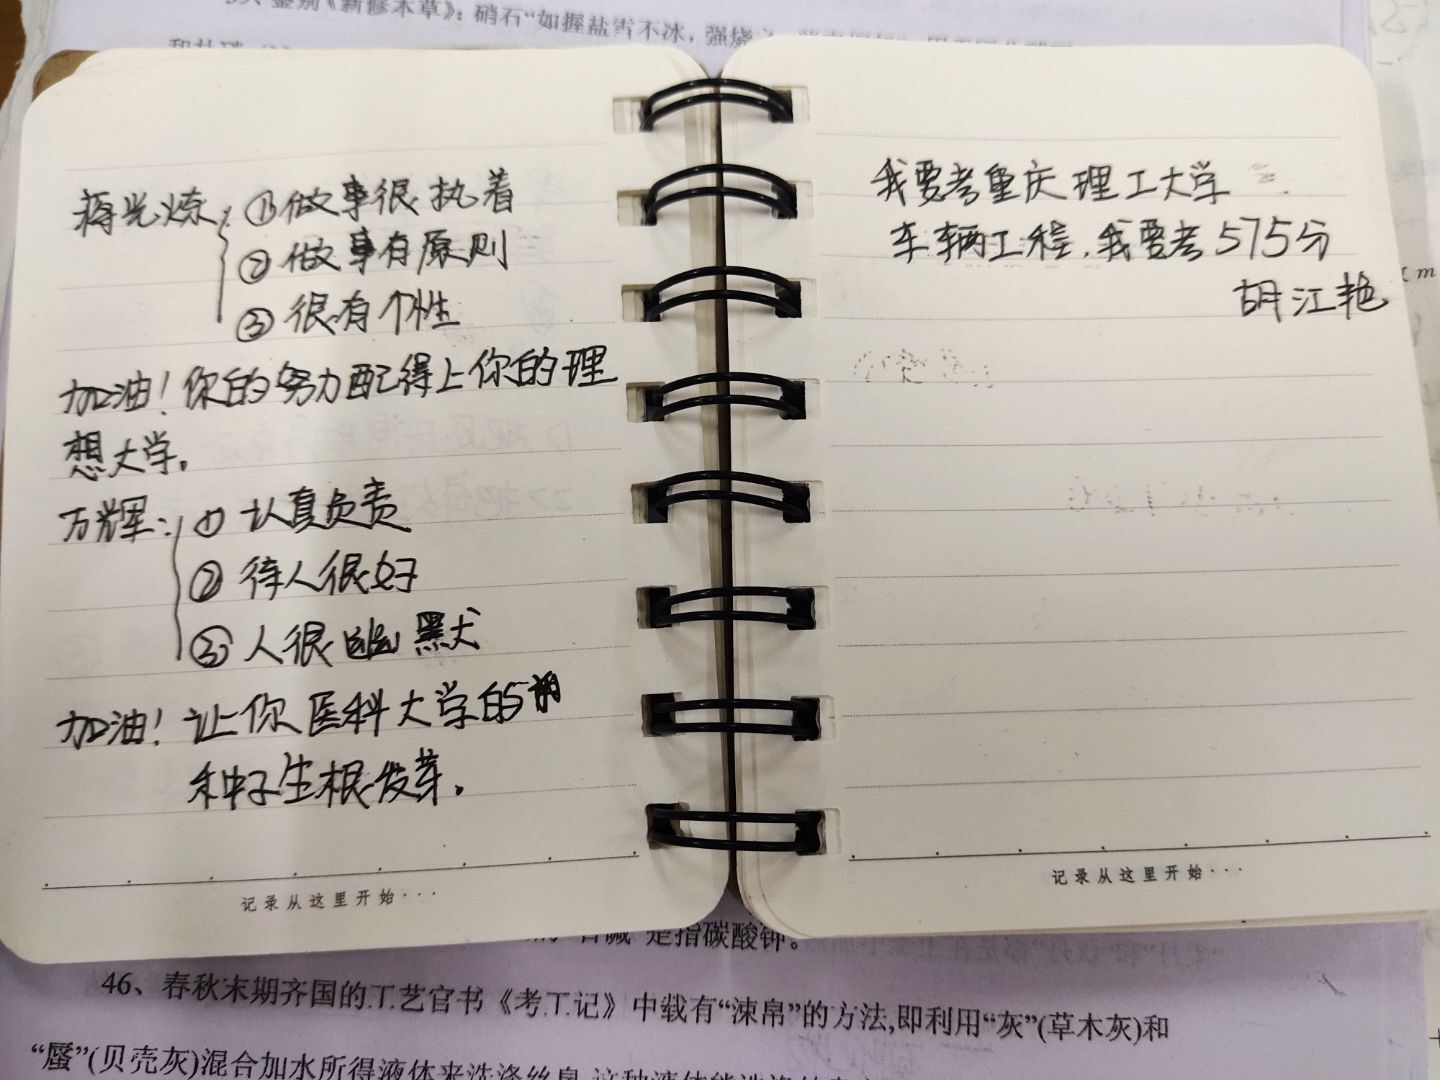 3、鉴别《新修本草》：硝石“如握盐雪不冰，强烧之
蒋光炼：①做事很执着
②做事有原则
③很有个性
加油！你的努力配得上你的理
想大学。
万辉：①认真负责
②待人很好
③人很幽默
加油！让你医科大学的
种子生根发芽。
记录从这里开始···
我要考重庆理工大学
车辆工程，我要考575分
胡江艳
记录从这里开始···
是指碳酸钾。
46、春秋末期齐国的工艺官书《考工记》中载有“涑帛”的方法,即利用“灰”(草木灰)和
“蜃”(贝壳灰)混合加水所得液体来洗涤丝帛